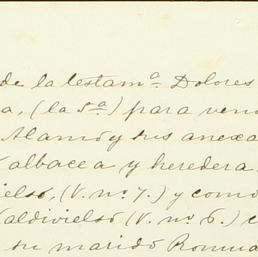 de la testamª. Dolores
a, (la 5ª) para ven
Alamo y sus anexa
albacea y heredera
ielso, (V. nº 7.) y como
Valdivielso (V. nº 6.) c
su marido Romua